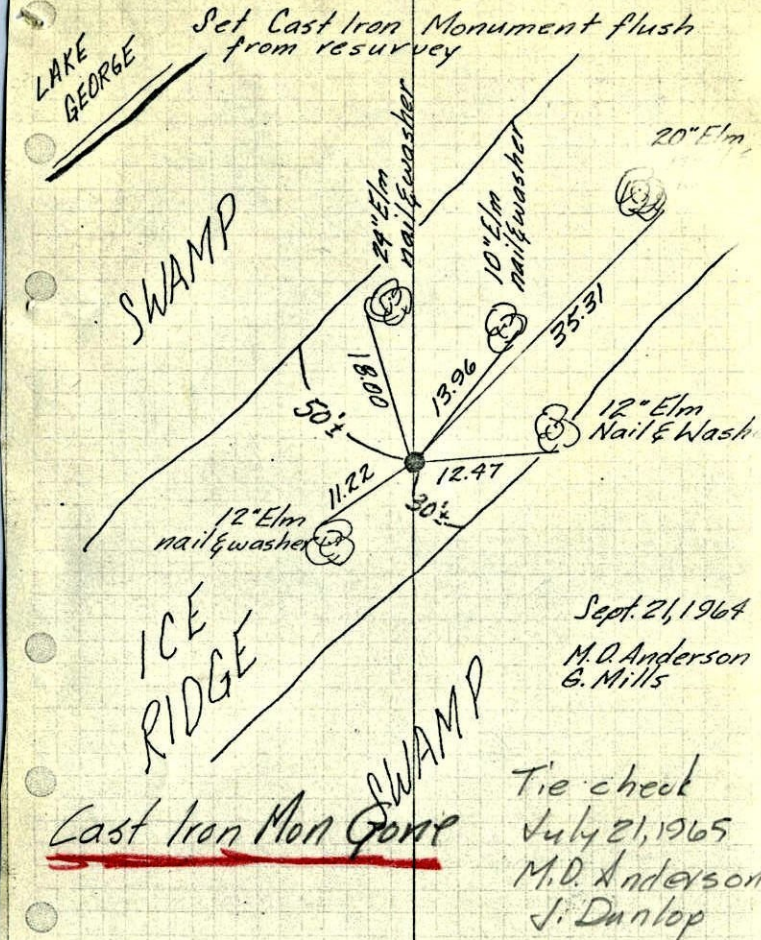 Set Cast Iron Monument flush
from resurvey
LAKE
GEORGE
SWAMP
24" Elm
nail & washer
10" Elm
nail & washer
20" Elm
18.00
13.96
35.31
50'±
12" Elm
Nail & Wash
11.22
12.47
30'±
12" Elm
nail & washer
ICE
RIDGE
SWAMP
Sept. 21, 1964
M.D. Anderson
G. Mills
Cast Iron Mon Gone
Tie check
July 21, 1965
M.D. Anderson
J. Dunlop